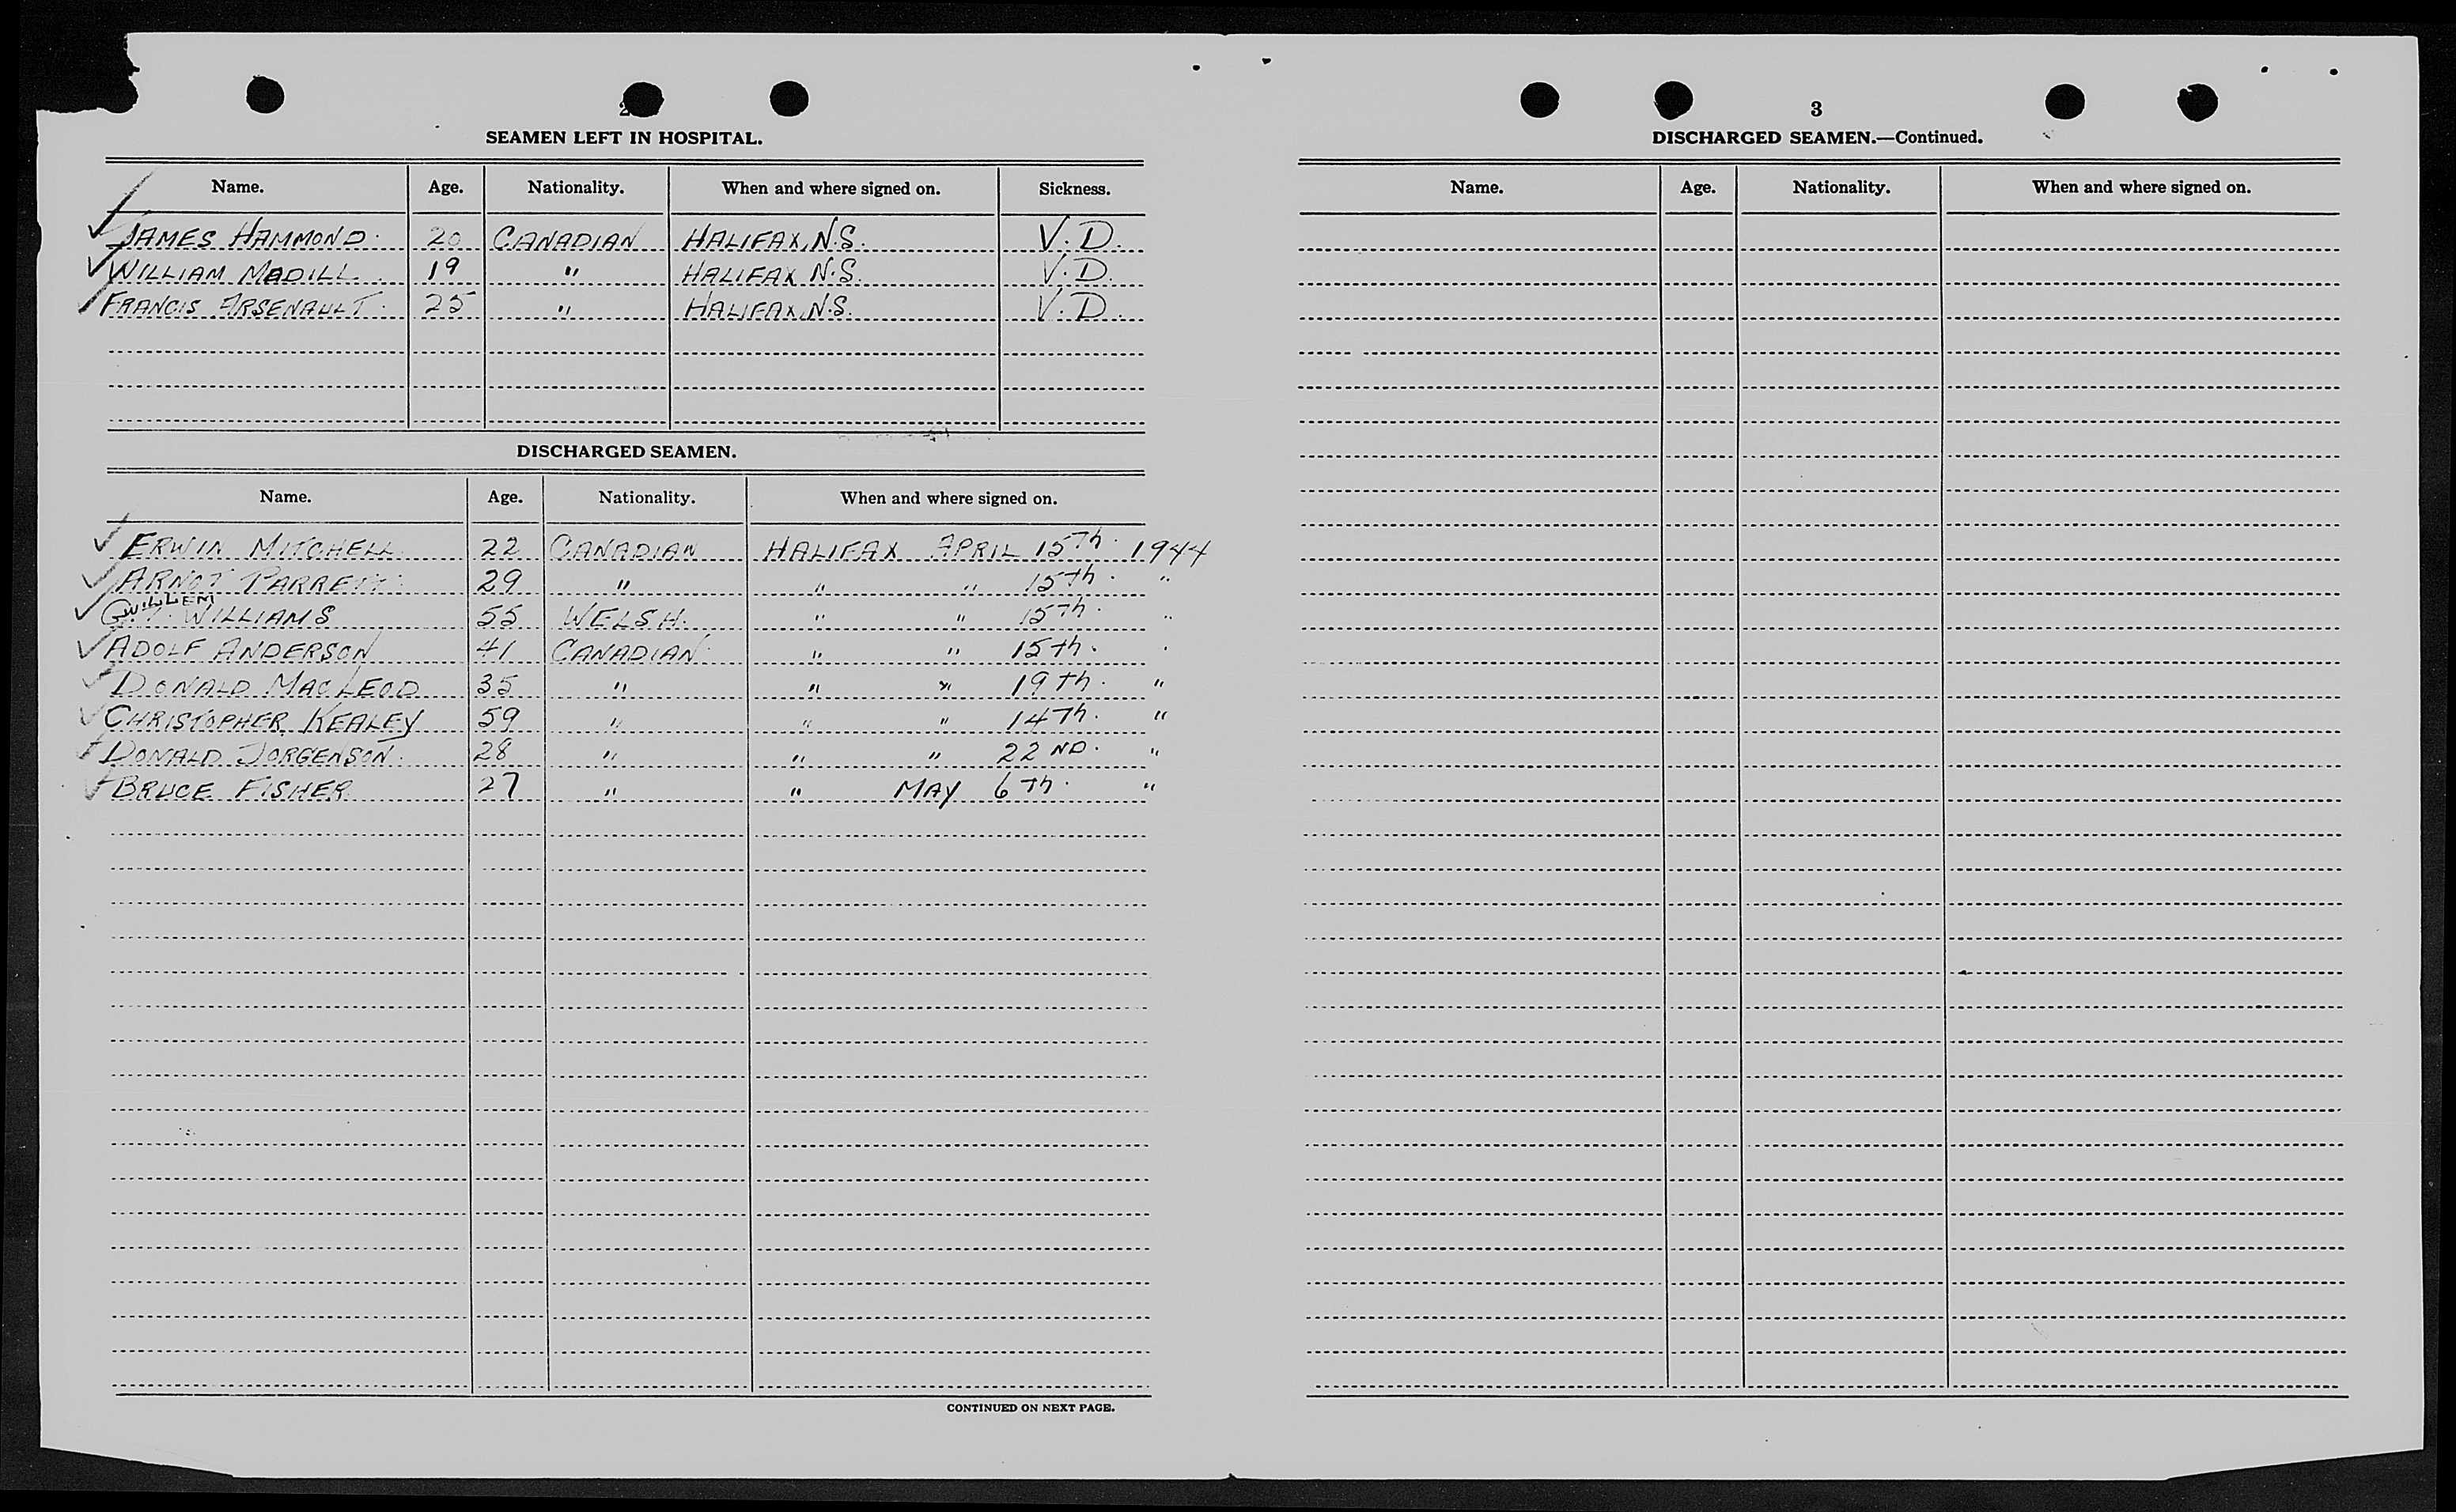 2
SEAMEN LEFT IN HOSPITAL.
Name. Age. Nationality. When and where signed on. Sickness.
JAMES HAMMOND. 20 CANADIAN HALIFAX, N.S. V.D.
WILLIAM MADILL. 19 " HALIFAX N.S. V.D.
FRANCIS ARSENAULT. 25 " HALIFAX, N.S. V.D.
DISCHARGED SEAMEN.
Name. Age. Nationality. When and where signed on.
ERWIN MITCHELL. 22 CANADIAN HALIFAX APRIL 15Th. 1944
ARNOT 29 " " " 15th. "
GWILLEM WILLIAMS 55 WELSH. " " 15Th. "
ADOLF ANDERSON 41 CANADIAN. " " 15th. "
DONALD MACLEOD 35 " " " 19Th. "
CHRISTOPHER KEALEY 59 " " " 14Th. "
DONALD JORGENSON. 28 " " " 22ND. "
BRUCE FISHER 27 " " MAY 6Th. "
CONTINUED ON NEXT PAGE.
3
DISCHARGED SEAMEN.—Continued.
Name. Age. Nationality. When and where signed on.